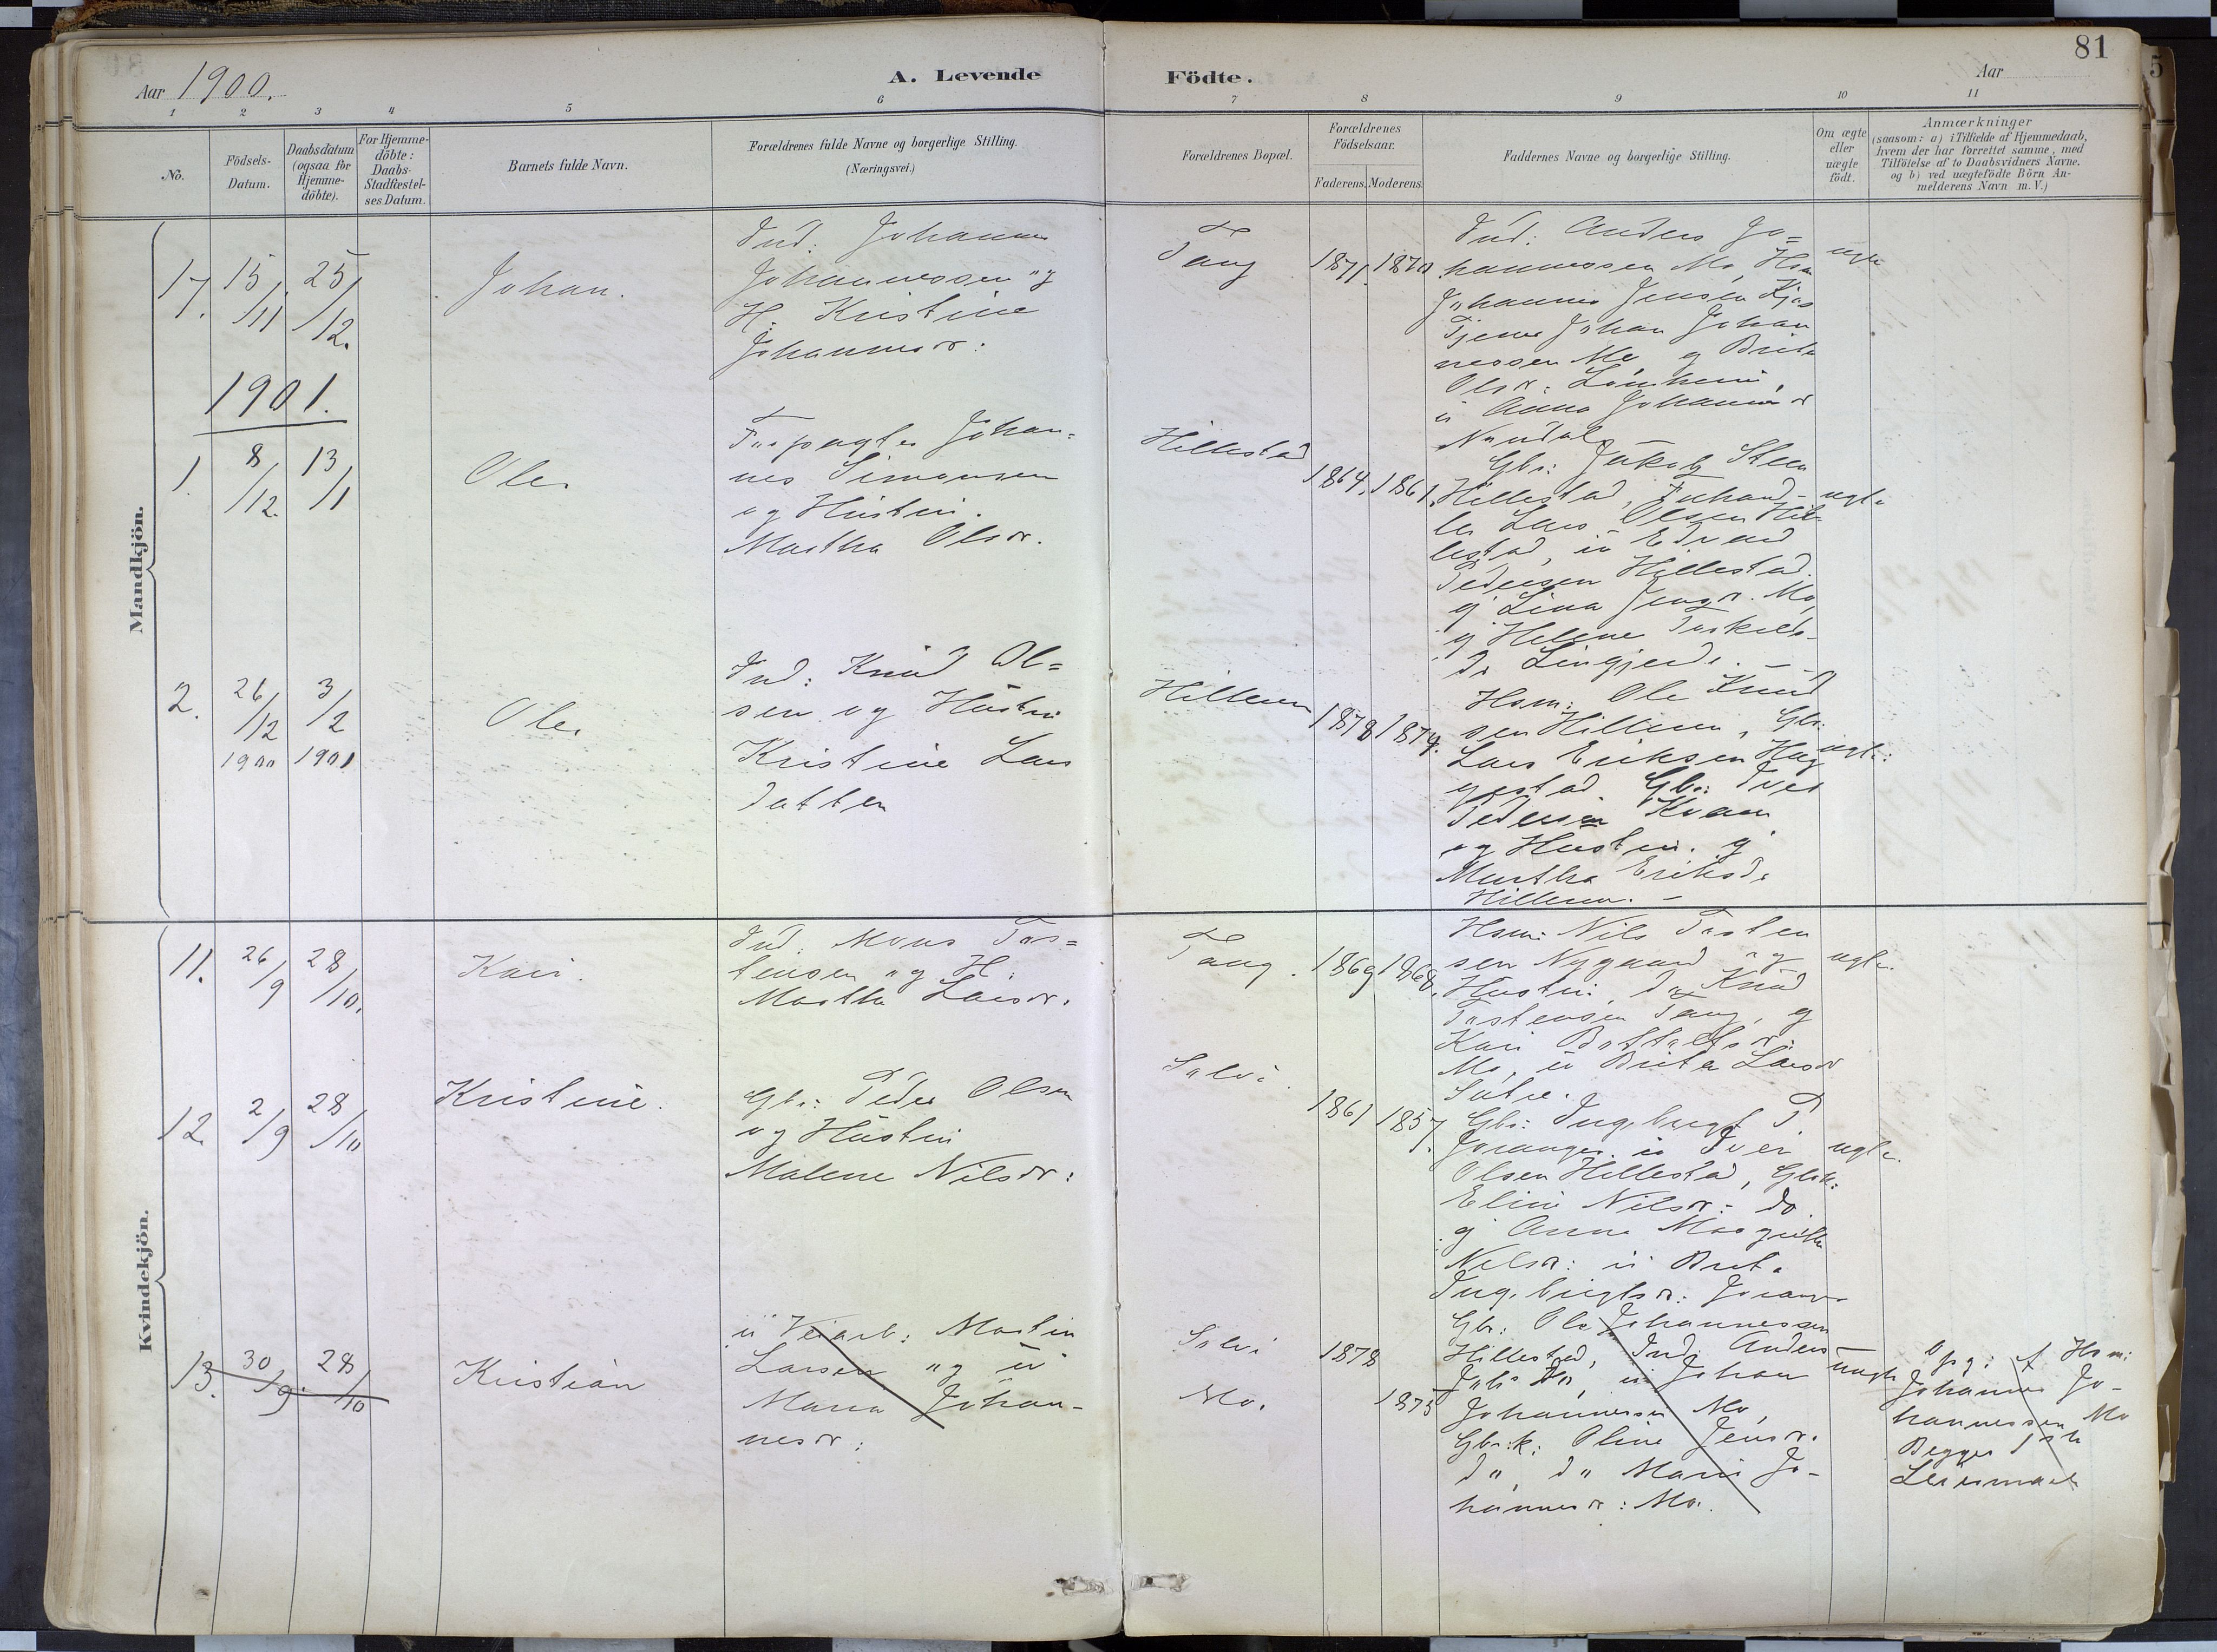 81
Aar 1900.
A. Levende Födte.
Aar
1 2 3 4 5 6 7 8 9 10 11
No.
Födsels-
Datum.
Daabsdatum
(ogsaa for
Hjemme-
döbte).
For Hjemme-
döbte:
Daabs-
Stadfæstel-
ses Datum.
Barnets fulde Navn.
Forældrenes fulde Navne og borgerlige Stilling.
(Næringsvei.)
Forældrenes Bopæl.
Forældrenes
Födselsaar.
Faderens. Moderens.
Faddernes Navne og borgerlige Stilling.
Om ægte
eller
uægte
födt.
Anmærkninger
(saasom: a) i Tilfælde af Hjemmedaab,
hvem der har forrettet samme, med
Tilföielse af to Daabsvidners Navne.
og b) ved uægtefödte Börn An-
melderens Navn m. V.)
Mandkjön.
17. 15/11 25/12.
Johan.
Ind: Johannes
Johannessen og
H: Kristine
Johannesdr:
Tang
1871. 1870
Ind: Anders Jo=
hannessen Mo, Hsm
Johannes Jensen
Tjener Johan Johan
nessen Mo, og Brita
Olsdr:
ü Anna Johannesdr
ægte
1901.
1. 8/12. 13/1
Ole.
Forpagter Johan=
nes Simonsen
og Hustru.
Martha Olsdr.
Hillestad
1864. 1861.
Gbr: Jakob Steen
Hillestad,
Lars Olsen Hil-
lestad, ü Edvard
Pedersen Hillestad.
gj Lina Jensdr. Mo,
gj Helene Torkels-
dr Lingjerde. —
ægte
2. 26/12 1900 3/2 1901
Ole.
Ind: Knud Ol=
sen og Hustru
Kristine Lars
datter
Hilleren
1878 1874.
Hsm: Ole Knud
sen Hilleren, Gbr:
Lars Eriksen Hag
gestad. Gbr: Iver
Pedersen Kvam
og Hustru. gj
Martha Eriksdr
Hilleren. —
ægte:
Kvindekjön.
11. 26/9 28/10.
Kari.
Ind: Mons Tor=
stensen og H:
Martha Larsdr.
Tang.
1869 1868.
Hsm: Nils Torsten
sen Nygaard og
Hustru, do Knud
Torstensen Tang, gj
Kari Bottolfsdr:
Mo, ü Brita Larsdr
ægte.
12. 2/9 28/10
Kristine.
Gbr: Peder Olsen
og Hustru
Malene Nilsdr:
Solvi.
1861 1857.
Gbr: Ingebrigt P.
Joranger. ü Iver
Olsen Hillestad, Gbrk:
Eline Nilsdr: do
gj Anna Margrethe
Nilsdr: ü Brita
Ingebrigtsdr: Joranger
ægte.
13. 30/9. 28/10
Kristian
ü Veiarb: Martin
Larsen og ü
Maria Johan-
nesdr:
Solvi
Mo.
1878
1875
Gbr: Ole Johannessen
Hillestad, Ind: Anders
ü Johan
Johannessen Mo,
Gbr:k: Oline Jensdr.
do, do Marie Jo-
hannesdr: Mo.
uægte
Opg: af Hsm:
Johannes Jo-
hannessen Mo
Begges 1ste
Leiermaal